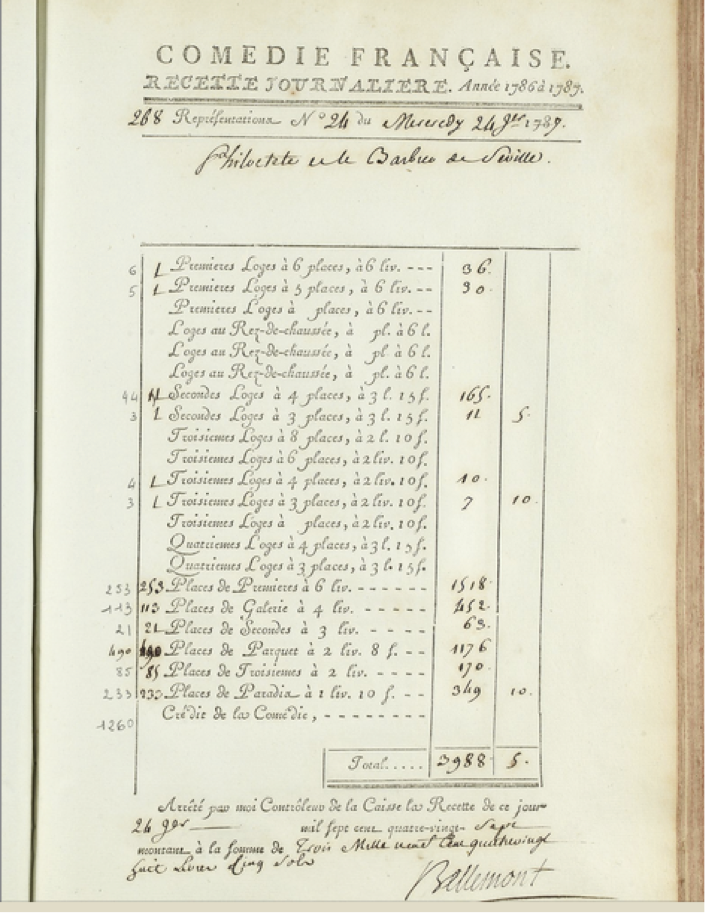 COMEDIE FRANÇAISE.
RECETTE JOURNALIERE. Année 1786 à 1787.
268 Représentations N.° 24 du Mercredy 24 Jer 1787.
Philoctete et le Barbier de Seville.
6 1 Premieres Loges à 6 places, à 6 liv. --- 36.
5 1 Premieres Loges à 5 places, à 6 liv. -- 30.
Premieres Loges à places, à 6 liv. --
Loges au Rez-de-chaussée, à pl. à 6 l.
Loges au Rez-de-chaussée, à pl. à 6 l.
Loges au Rez-de-chaussée, à pl. à 6 l.
44 11 Secondes Loges à 4 places, à 3 l. 15 ſ. 165.
3 1 Secondes Loges à 3 places, à 3 l. 15 ſ. 11 5.
Troisiemes Loges à 8 places, à 2 l. 10 ſ.
Troisiemes Loges à 6 places, à 2 liv. 10 ſ.
4 1 Troisiemes Loges à 4 places, à 2 liv. 10 ſ. 10.
3 1 Troisiemes Loges à 3 places, à 2 liv. 10 ſ. 7 10.
Troisiemes Loges à places, à 2 liv. 10 ſ.
Quatriemes Loges à 4 places, à 3 l. 15 ſ.
Quatriemes Loges à 3 places, à 3 l. 15 ſ.
253 253 Places de Premieres à 6 liv. ------ 1518.
113 113 Places de Galerie à 4 liv. ------ 452.
21 21 Places de Secondes à 3 liv. ---- 63.
490 490 Places de Parquet à 2 liv. 8 ſ. -- 1176
85 85 Places de Troisiemes à 2 liv. ---- 170.
233 233 Places de Paradis à 1 liv. 10 ſ. -- 349 10.
Crédit de la Comédie, --------
1260
Total..... 3988 5.
Arrêté par moi Contrôleur de la Caisse la Recette de ce jour
24 Jer mil sept cent quatre-vingt- Sept
montant à la somme de Trois Mille neuf Cent quatrevingt
huit Livres Cinq Sols
Bellemont